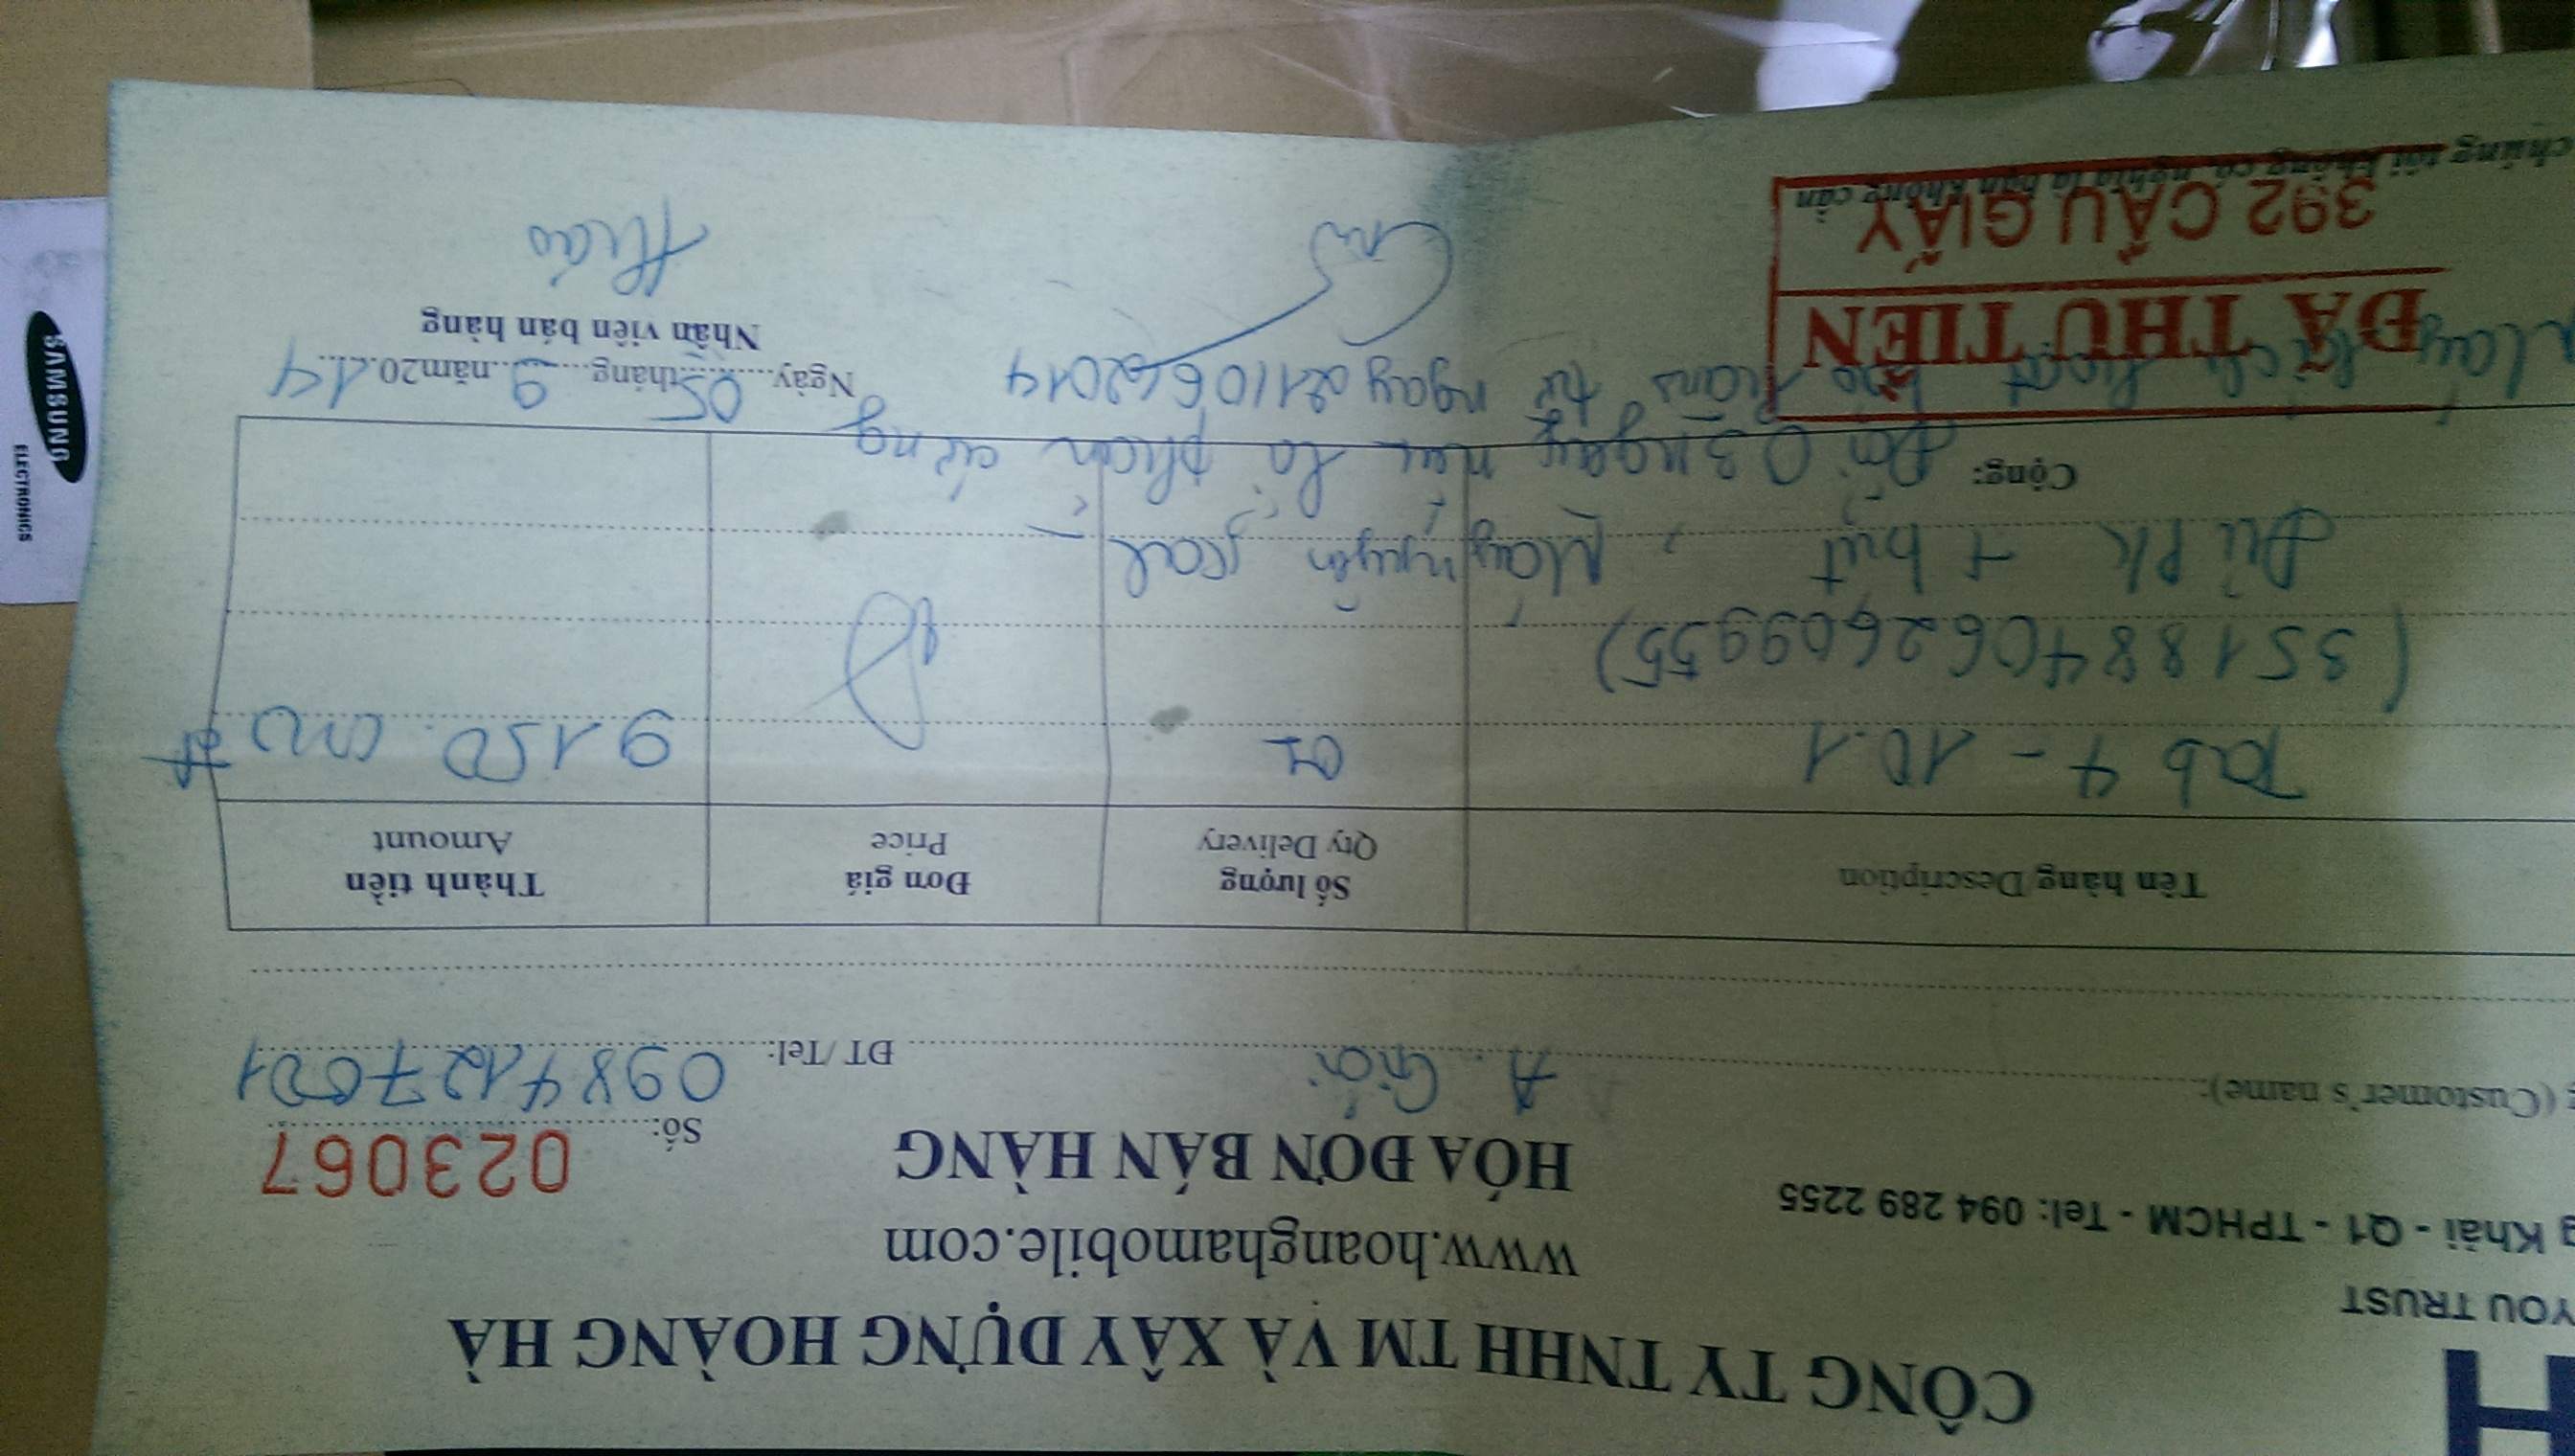 H
CÔNG TY TNHH TM VÀ XÂY DỰNG HOÀNG HÀ
YOU TRUST
www.hoanghamobile.com
g Khải - Q1 - TPHCM - Tel: 094 289 2255
HÓA ĐƠN BÁN HÀNG
Số: 023067
(Customer's name): A. Giới ĐT/Tel: 0984127001
Tên hàng Description Số lượng Qty Delivery Đơn giá Price Thành tiền Amount
Tab 4 - 10.1 01 9150.000
(351884062609955)
Đủ PK + bút, Máy nguyên seal
Cộng: Đổi 03 ngày nếu lỗi phần cứng
kích hoạt bảo hành từ ngày 21/06/2014
Ngày 05 tháng 9 năm 2014
ĐÃ THU TIỀN
Nhân viên bán hàng
392 CẦU GIẤY
Thảo
chúng tôi không có, nghĩa là bạn không cần
SAMSUNG
ELECTRONICS